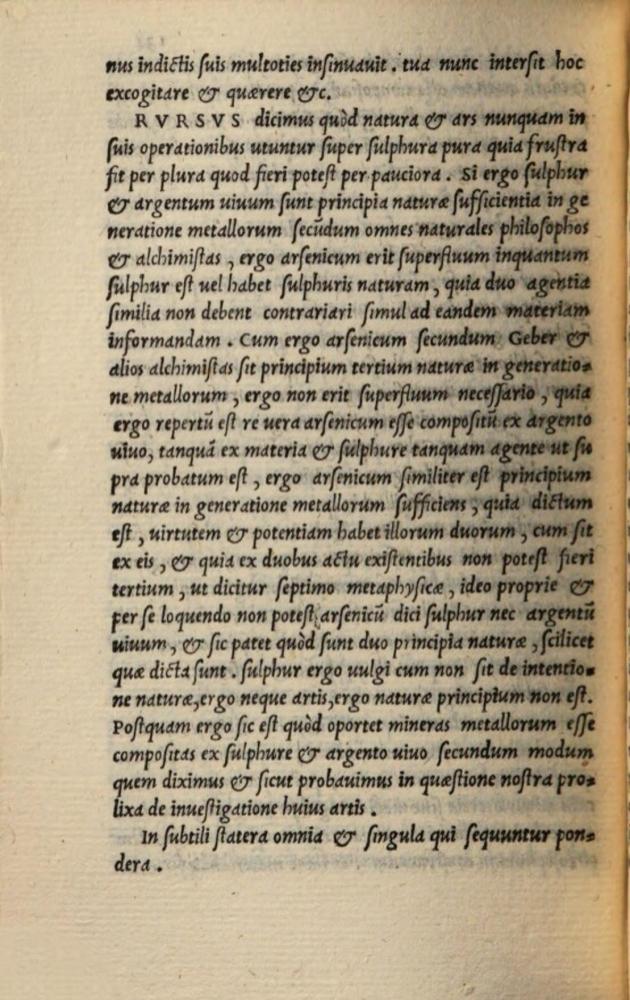 nus indictis ſuis multoties inſinuauit . tua nunc interſit hoc
excogitare & quærere &c.
RVRSVS dicimus quòd natura & ars nunquam in
ſuis operationibus utuntur ſuper ſulphura pura quia fruſtra
fit per plura quod fieri poteſt per pauciora . Si ergo ſulphur
& argentum uiuum ſunt principia naturæ ſufficientia in ge
neratione metallorum ſecūdum omnes naturales philoſophos
& alchimiſtas , ergo arſenicum erit ſuperfluum inquantum
ſulphur eſt uel habet ſulphuris naturam , quia duo agentia
ſimilia non debent contrariari ſimul ad eandem materiam
informandam . Cum ergo arſenicum ſecundum Geber &
alios alchimiſtas ſit principium tertium naturæ in generatio⸗
ne metallorum , ergo non erit ſuperfluum neceſſario , quia
ergo repertū eſt re uera arſenicum eſſe compoſitū ex argento
uiuo, tanquā ex materia & ſulphure tanquam agente ut ſu
pra probatum eſt , ergo arſenicum ſimiliter eſt principium
naturæ in generatione metallorum ſufficiens , quia dictum
eſt , uirtutem & potentiam habet illorum duorum , cum ſit
ex eis , & quia ex duobus actu exiſtentibus non poteſt fieri
tertium , ut dicitur ſeptimo metaphyſicæ , ideo proprie &
per ſe loquendo non poteſt arſenicū dici ſulphur nec argentū
uiuum , & ſic patet quòd ſunt duo principia naturæ , ſcilicet
quæ dicta ſunt . ſulphur ergo uulgi cum non ſit de intentio⸗
ne naturæ,ergo neque artis,ergo naturæ principium non eſt.
Poſtquam ergo ſic eſt quòd oportet mineras metallorum eſſe
compoſitas ex ſulphure & argento uiuo ſecundum modum
quem diximus & ſicut probauimus in quæſtione noſtra pro⸗
lixa de inueſtigatione huius artis .
In ſubtili ſtatera omnia & ſingula qui ſequuntur pon⸗
dera .